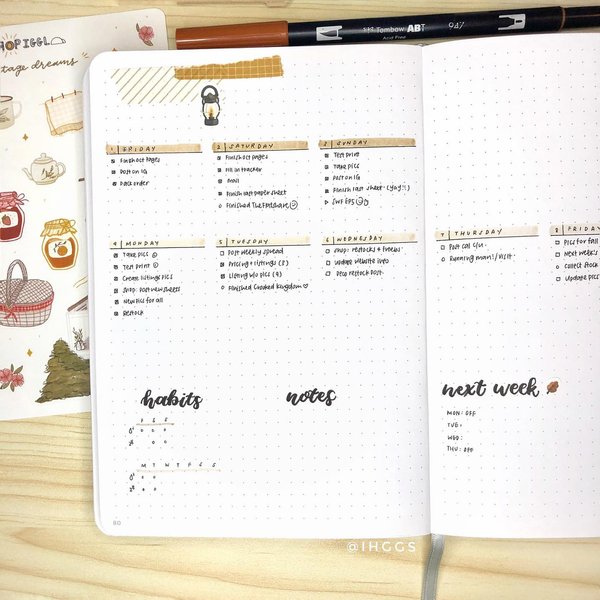 HOP IGGL
tage dreams
Tombow ABT
947
Acid Free
1 FRIDAY
Finish Oct pages
Post on IG
Daci order
2 SATURDAY
Finish Oct pages
Fill in tracker
Mail
Finish last paper sheet
Finished The Fatshare
3 SUNDAY
Test print
Take pics
Post on IG
Finish last sheet (yay!!)
SWF EP5
4 MONDAY
Take pics
Test print
Create listings pics
Shop: Post new sheets
New pics for all
Restock
5 TUESDAY
Post weekly spread
Pricing + listings (3)
Listing w/o pics (9)
Finished Crooked Kingdom ♡
6 WEDNESDAY
Shop: restocks + freebs
Update website info
Deco restock post
7 THURSDAY
Post call c/u
Running man! / Visit
8 FRIDAY
Pics for fall
Next week's
Collect stock
Update pics
habits
F S S
M T W T F S S
notes
next week
MON: OFF
TUE:
WED:
THU: OFF
80
@IHGGS